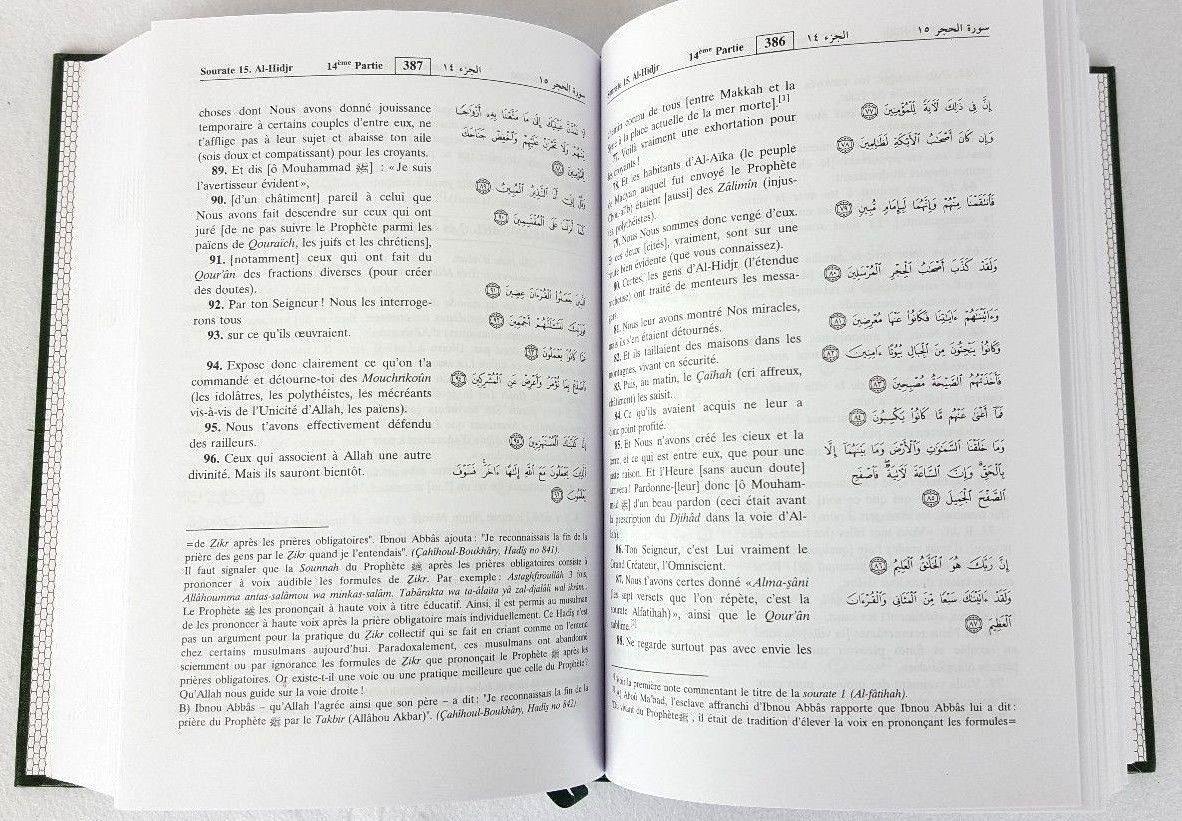 Sourate 15. Al-Hidjr 14ème Partie 386 الجزء ١٤ سورة الحجر ١٥
connu de tous [entre Makkah et la
à la place actuelle de la mer morte].[1]
77. Voilà vraiment une exhortation pour
les croyants !
78. Et les habitants d'Al-Aïka (le peuple
de Madyan auquel fut envoyé le Prophète
étaient [aussi] des Zâlimîn (injus-
polythéistes).
79. Nous Nous sommes donc vengé d'eux.
ces deux [cités], vraiment, sont sur une
bien évidente (que vous connaissez).
80. Certes, les gens d'Al-Hidjr (l'étendue
ont traité de menteurs les messa-
81. Nous leur avons montré Nos miracles,
mais ils s'en étaient détournés.
82. Et ils taillaient des maisons dans les
montagnes, vivant en sécurité.
83. Puis, au matin, le Çaïhah (cri affreux,
le saisit.
84. Ce qu'ils avaient acquis ne leur a
donc point profité.
85. Et Nous n'avons créé les cieux et la
terre, et ce qui est entre eux, que pour une
raison. Et l'Heure [sans aucun doute]
arrivera ! Pardonne-[leur] donc [ô Mouham-
mad ﷺ] d'un beau pardon (ceci était avant
la prescription du Djihâd dans la voie d'Al-
86. Ton Seigneur, c'est Lui vraiment le
Grand Créateur, l'Omniscient.
87. Nous t'avons certes donné «Alma-sâni
[les sept versets que l'on répète, c'est la
sourate Alfatihah)», ainsi que le Qour'ân
sublime.
88. Ne regarde surtout pas avec envie les
إِنَّ فِي ذَٰلِكَ لَآيَةً لِّلْمُؤْمِنِينَ ٧٧
وَإِن كَانَ أَصْحَابُ الْأَيْكَةِ لَظَالِمِينَ ٧٨
فَانتَقَمْنَا مِنْهُمْ وَإِنَّهُمَا لَبِإِمَامٍ مُّبِينٍ ٧٩
وَلَقَدْ كَذَّبَ أَصْحَابُ الْحِجْرِ الْمُرْسَلِينَ ٨٠
وَءَاتَيْنَاهُمْ ءَايَاتِنَا فَكَانُوا عَنْهَا مُعْرِضِينَ ٨١
وَكَانُوا يَنْحِتُونَ مِنَ الْجِبَالِ بُيُوتًا ءَامِنِينَ ٨٢
فَأَخَذَتْهُمُ الصَّيْحَةُ مُصْبِحِينَ ٨٣
فَمَا أَغْنَىٰ عَنْهُم مَّا كَانُوا يَكْسِبُونَ ٨٤
وَمَا خَلَقْنَا السَّمَاوَاتِ وَالْأَرْضَ وَمَا بَيْنَهُمَا إِلَّا
بِالْحَقِّ وَإِنَّ السَّاعَةَ لَآتِيَةٌ فَاصْفَحِ
الصَّفْحَ الْجَمِيلَ ٨٥
إِنَّ رَبَّكَ هُوَ الْخَلَّاقُ الْعَلِيمُ ٨٦
وَلَقَدْ ءَاتَيْنَاكَ سَبْعًا مِّنَ الْمَثَانِي وَالْقُرْءَانَ
الْعَظِيمَ ٨٧
la première note commentant le titre de la sourate 1 (Al-fâtihah).
Abou Ma'bad, l'esclave affranchi d'Ibnou Abbâs rapporte que Ibnou Abbâs lui a dit :
du Prophète ﷺ, il était de tradition d'élever la voix en prononçant les formules=
Sourate 15. Al-Hidjr 14ème Partie 387 الجزء ١٤ سورة الحجر ١٥
choses dont Nous avons donné jouissance
temporaire à certains couples d'entre eux, ne
t'afflige pas à leur sujet et abaisse ton aile
(sois doux et compatissant) pour les croyants.
89. Et dis [ô Mouhammad ﷺ] : «Je suis
l'avertisseur évident»,
90. [d'un châtiment] pareil à celui que
Nous avons fait descendre sur ceux qui ont
juré [de ne pas suivre le Prophète parmi les
païens de Qouraïch, les juifs et les chrétiens],
91. [notamment] ceux qui ont fait du
Qour'ân des fractions diverses (pour créer
des doutes).
92. Par ton Seigneur ! Nous les interroge-
rons tous
93. sur ce qu'ils œuvraient.
94. Expose donc clairement ce qu'on t'a
commandé et détourne-toi des Mouchrikoûn
(les idolâtres, les polythéistes, les mécréants
vis-à-vis de l'Unicité d'Allah, les païens).
95. Nous t'avons effectivement défendu
des railleurs.
96. Ceux qui associent à Allah une autre
divinité. Mais ils sauront bientôt.
لَا تَمُدَّنَّ عَيْنَيْكَ إِلَىٰ مَا مَتَّعْنَا بِهِ أَزْوَاجًا
مِّنْهُمْ وَلَا تَحْزَنْ عَلَيْهِمْ وَاخْفِضْ جَنَاحَكَ
لِلْمُؤْمِنِينَ ٨٨
وَقُلْ إِنِّي أَنَا النَّذِيرُ الْمُبِينُ ٨٩
كَمَا أَنزَلْنَا عَلَى الْمُقْتَسِمِينَ ٩٠
الَّذِينَ جَعَلُوا الْقُرْءَانَ عِضِينَ ٩١
فَوَرَبِّكَ لَنَسْأَلَنَّهُمْ أَجْمَعِينَ ٩٢
عَمَّا كَانُوا يَعْمَلُونَ ٩٣
فَاصْدَعْ بِمَا تُؤْمَرُ وَأَعْرِضْ عَنِ الْمُشْرِكِينَ ٩٤
إِنَّا كَفَيْنَاكَ الْمُسْتَهْزِءِينَ ٩٥
الَّذِينَ يَجْعَلُونَ مَعَ اللَّهِ إِلَٰهًا ءَاخَرَ فَسَوْفَ
يَعْلَمُونَ ٩٦
=de Zikr après les prières obligatoires". Ibnou Abbâs ajouta : "Je reconnaissais la fin de la
prière des gens par le Zikr quand je l'entendais". (Çahîhoul-Boukhâry, Hadîs no 841).
Il faut signaler que la Sounnah du Prophète ﷺ après les prières obligatoires consiste à
prononcer à voix audible les formules de Zikr. Par exemple : Astaghfiroullâh 3 fois,
Allâhoumma antas-salâmou wa minkas-salâm. Tabârakta wa ta-âlaïta yâ zal-djalâli wal ikrâm.
Le Prophète ﷺ les prononçait à haute voix à titre éducatif. Ainsi, il est permis au musulman
de les prononcer à haute voix après la prière obligatoire mais individuellement. Ce Hadîs n'est
pas un argument pour la pratique du Zikr collectif qui se fait en criant comme on l'entend
chez certains musulmans aujourd'hui. Paradoxalement, ces musulmans ont abandonné
sciemment ou par ignorance les formules de Zikr que prononçait le Prophète ﷺ après les
prières obligatoires. Or existe-t-il une voie ou une pratique meilleure que celle du Prophète?
Qu'Allah nous guide sur la voie droite !
B) Ibnou Abbâs – qu'Allah l'agrée ainsi que son père – a dit : "Je reconnaissais la fin de la
prière du Prophète ﷺ par le Takbir (Allâhou Akbar)". (Çahîhoul-Boukhâry, Hadîs no 842)